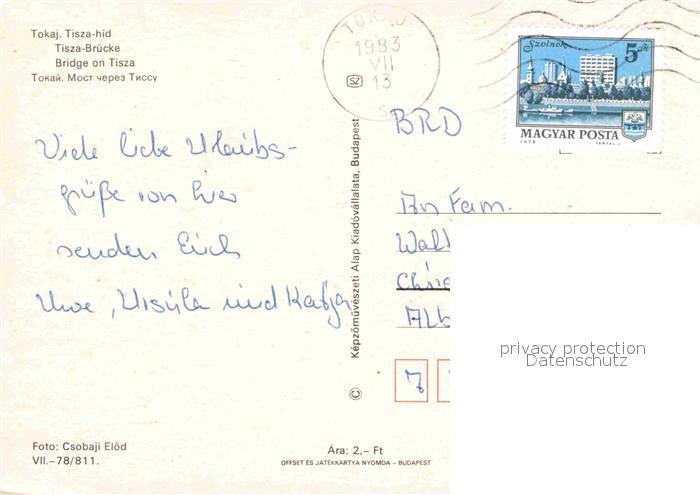 Tokaj. Tisza-híd
Tisza-Brücke
Bridge on Tisza
Токай. Мост через Тиссу
TOKAJ
1983
VII
13
SZ
Szolnok
5 Ft
MAGYAR POSTA
1975
BRD
Viele liebe Urlaubs-
grüße von hier
senden Euch
Uwe, Ursula und Katja
An Fam.
Walt
Alb
7
Képzőművészeti Alap Kiadóvállalata, Budapest
©
privacy protection
Datenschutz
Foto: Csobaji Előd
VII.–78/811.
Ára: 2,– Ft
OFFSET ÉS JÁTÉKKÁRTYA NYOMDA – BUDAPEST